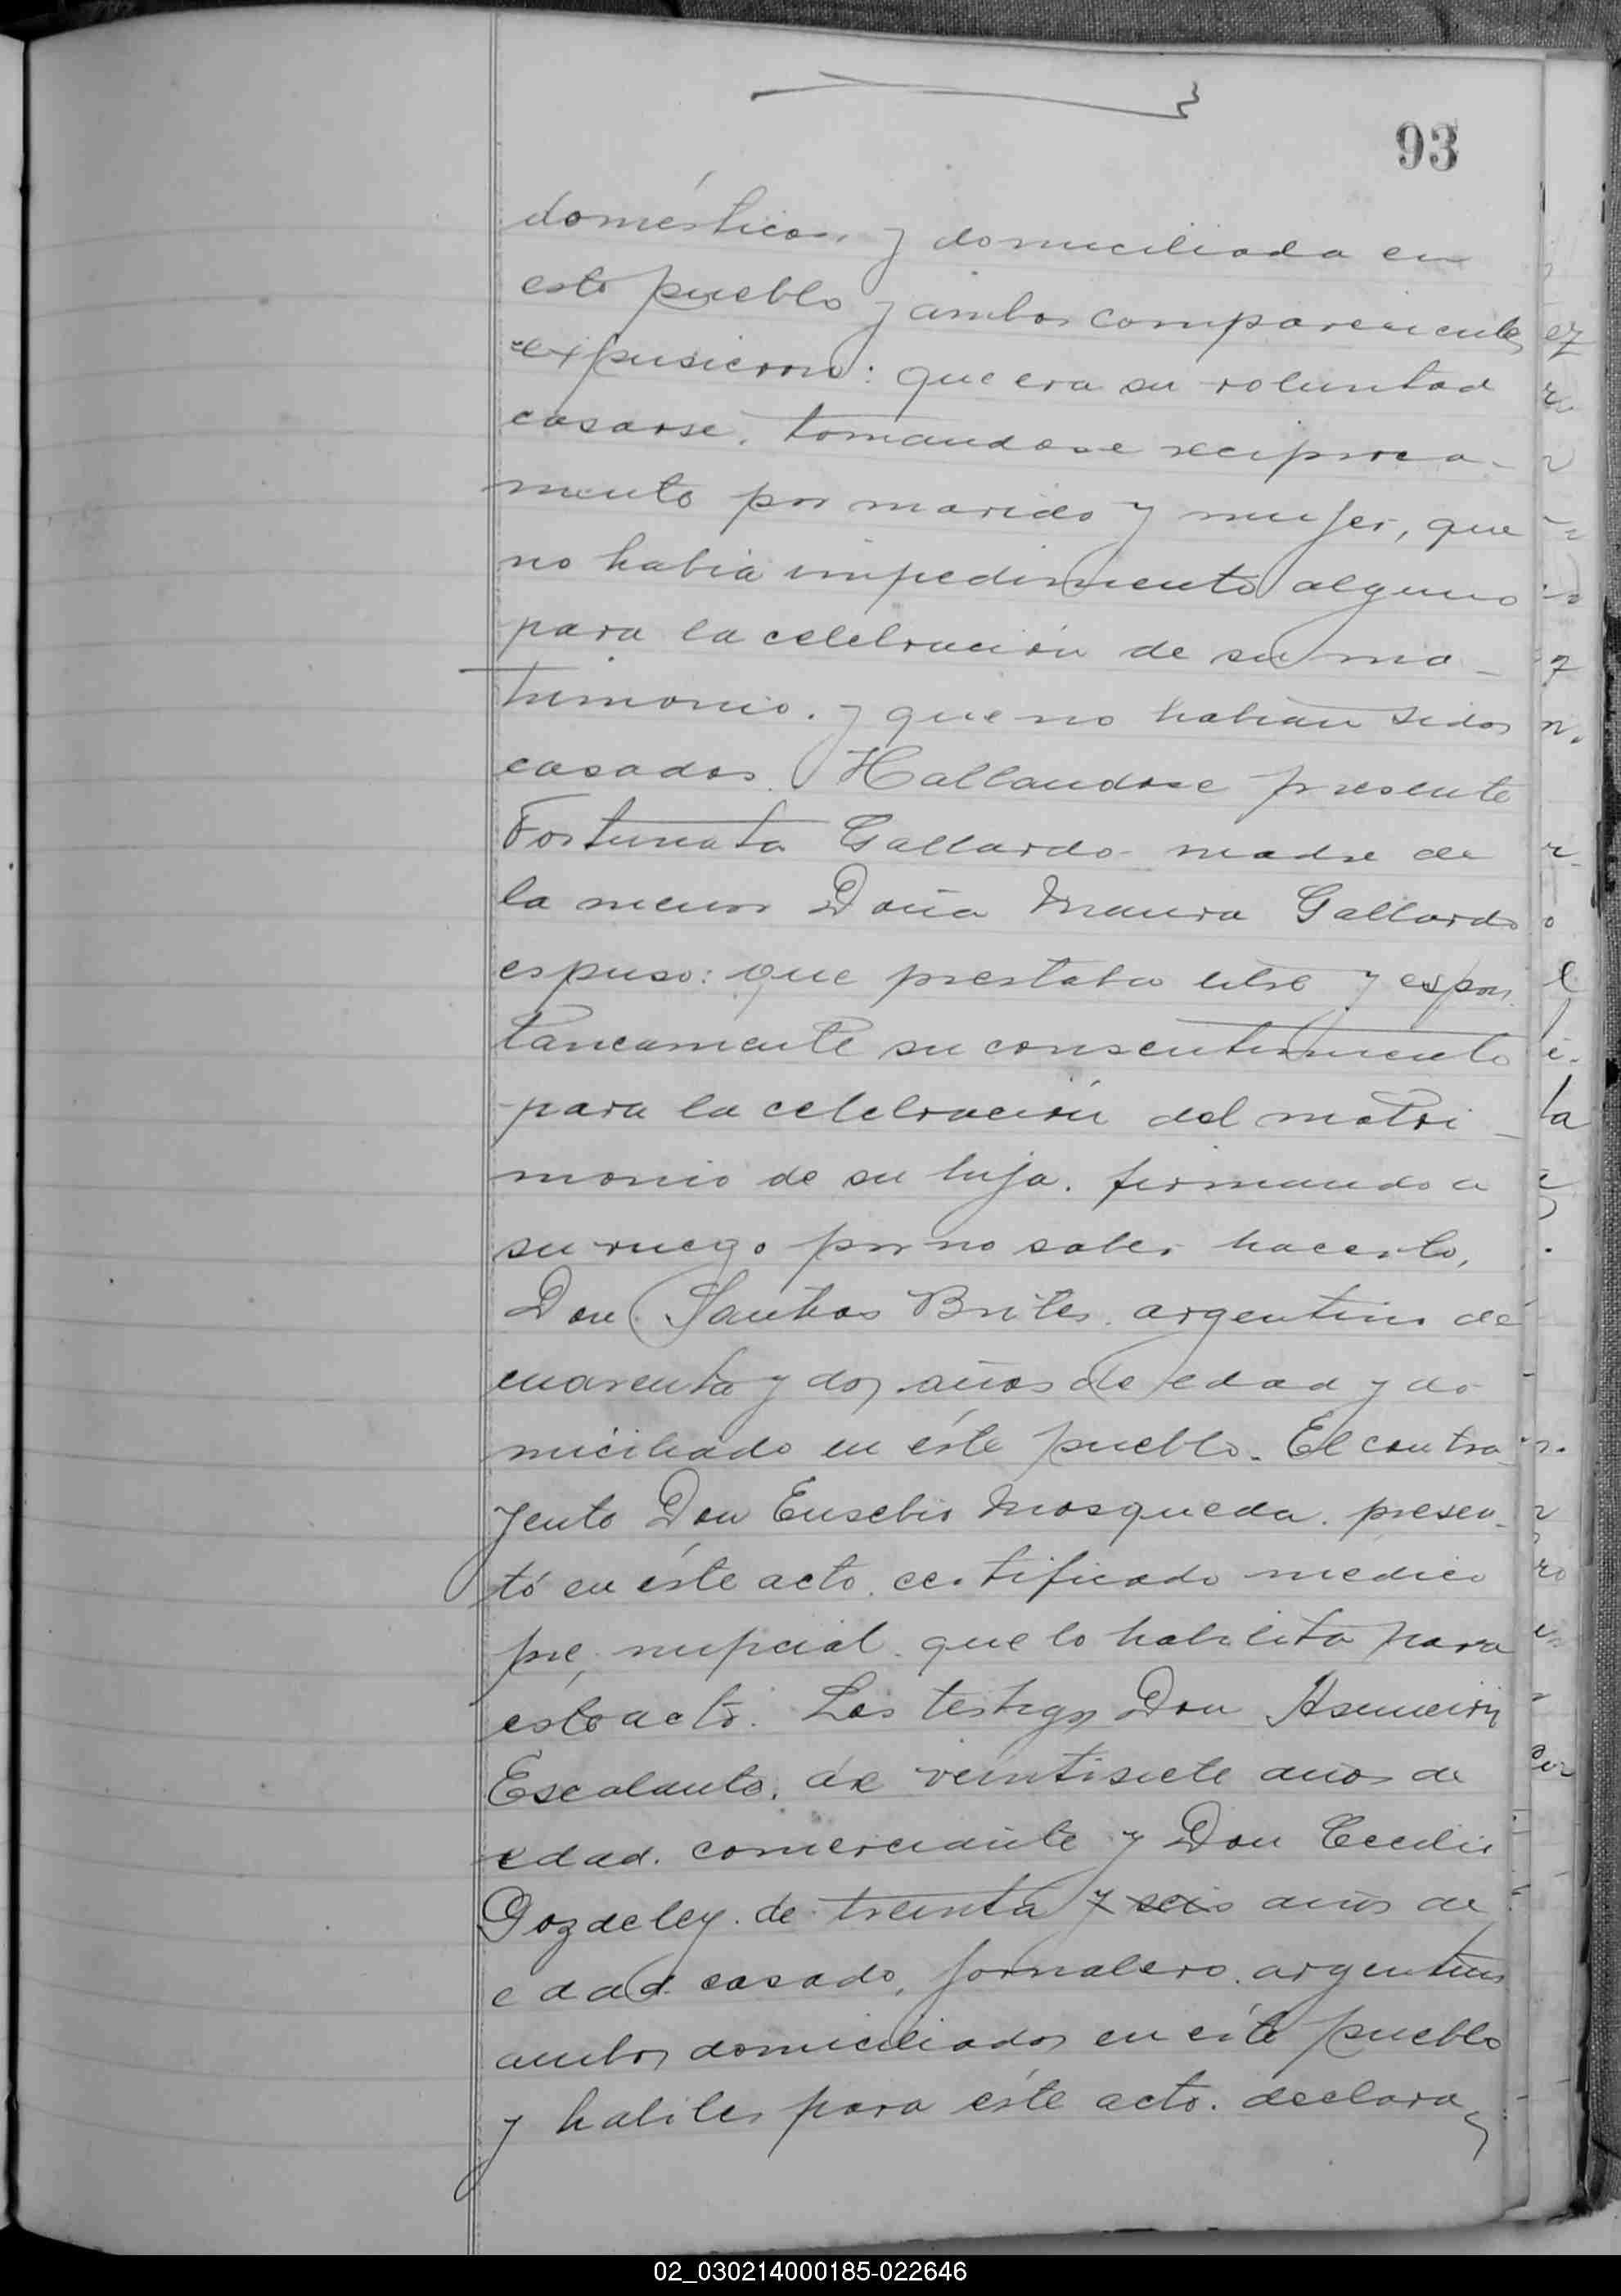 93
domésticos, y domiciliada en
este pueblo y ambos comparecientes
expusieron: que era su voluntad
casarse, tomandose reciproca-
mente por marido y mujer, que
no habia impedimento alguno
para la celebración de su ma-
trimonio. y que no habian sidos
casados. Hallandose presente
Fortunata Gallardo madre de
la menor Doña Maura Gallardo
espuso: que prestaba libre y espon
taneamente su consentimiento
para la celebración del matri-
monio de su hija. firmando a
su ruego por no saber hacerlo,
Don Santos Brites. argentino de
cuarenta y dos años de edad y do
miciliado en éste pueblo. El contra-
yente Don Eusebio Mosqueda. presen-
tó en éste acto. certificado medico
pre nupcial. que lo habilita para
éste acto. Los testigos Don Asunción
Escalante. de veintisiete años de
edad. comerciante y Don Cecilio
de treinta y seis años de
edad. casado, jornalero. argentinos
ambos domiciliados en éste pueblo
y habiles para éste acto. declaran
02_030214000185-022646